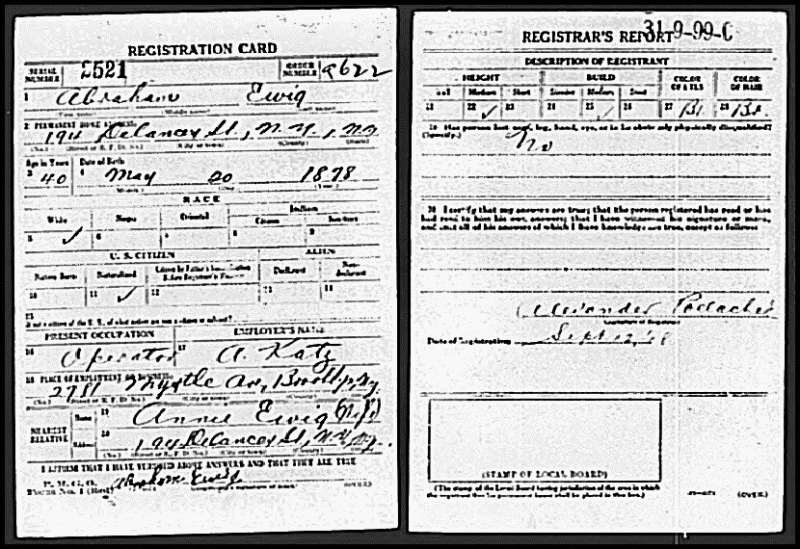 REGISTRATION CARD
SERIAL NUMBER 2521 ORDER NUMBER 9622
1 Abraham Ewig
2 PERMANENT HOME ADDRESS
194 Delancey St., N.Y., N.Y.
(No.) (Street or R. F. D. No.) (City or town) (County) (State)
Age in Years Date of Birth
3 40 4 May 20 1878
RACE
White Negro Oriental Indian
Citizen
5 ✓ 6 7 8 9
U. S. CITIZEN ALIEN
Native Born Naturalized Declarant Non-declarant
10 11 ✓ 12
15
If not a citizen of the U. S., of what nation are you a citizen or subject?
PRESENT OCCUPATION EMPLOYER'S NAME
16 Operator 17 A. Katz
18 PLACE OF EMPLOYMENT OR BUSINESS
Myrtle Av, Brooklyn, Ny.
(No.) (Street or R. F. D. No.) (City or town) (County) (State)
NEAREST RELATIVE Name 19 Annie Ewig
Address 20 194 Delancey St, N.Y., Ny.
(No.) (Street or R. F. D. No.) (City or town) (County) (State)
I AFFIRM THAT I HAVE VERIFIED ABOVE ANSWERS AND THAT THEY ARE TRUE
P. M. G. O.
Form No. 1 (Red) Abraham Ewig (OVER)
REGISTRAR'S REPORT 31-9-99-C
DESCRIPTION OF REGISTRANT
HEIGHT BUILD COLOR OF EYES COLOR OF HAIR
Tall Medium Short Slender Medium Stout
21 22 ✓ 23 24 25 ✓ 26 27 Br. 28 Br.
29 Has person lost arm, leg, hand, eye, or is he obviously physically disqualified?
(Specify.) No
30 I certify that my answers are true; that the person registered has read or has
had read to him his own answers; that I have witnessed his signature or mark,
and that all of his answers of which I have knowledge are true, except as follows:
Alexander
Date of Registration Sept 12, 18
(STAMP OF LOCAL BOARD)
(The stamp of the Local Board having jurisdiction of the area in which
the registrant has his permanent home shall be placed in this box.)
(OVER)